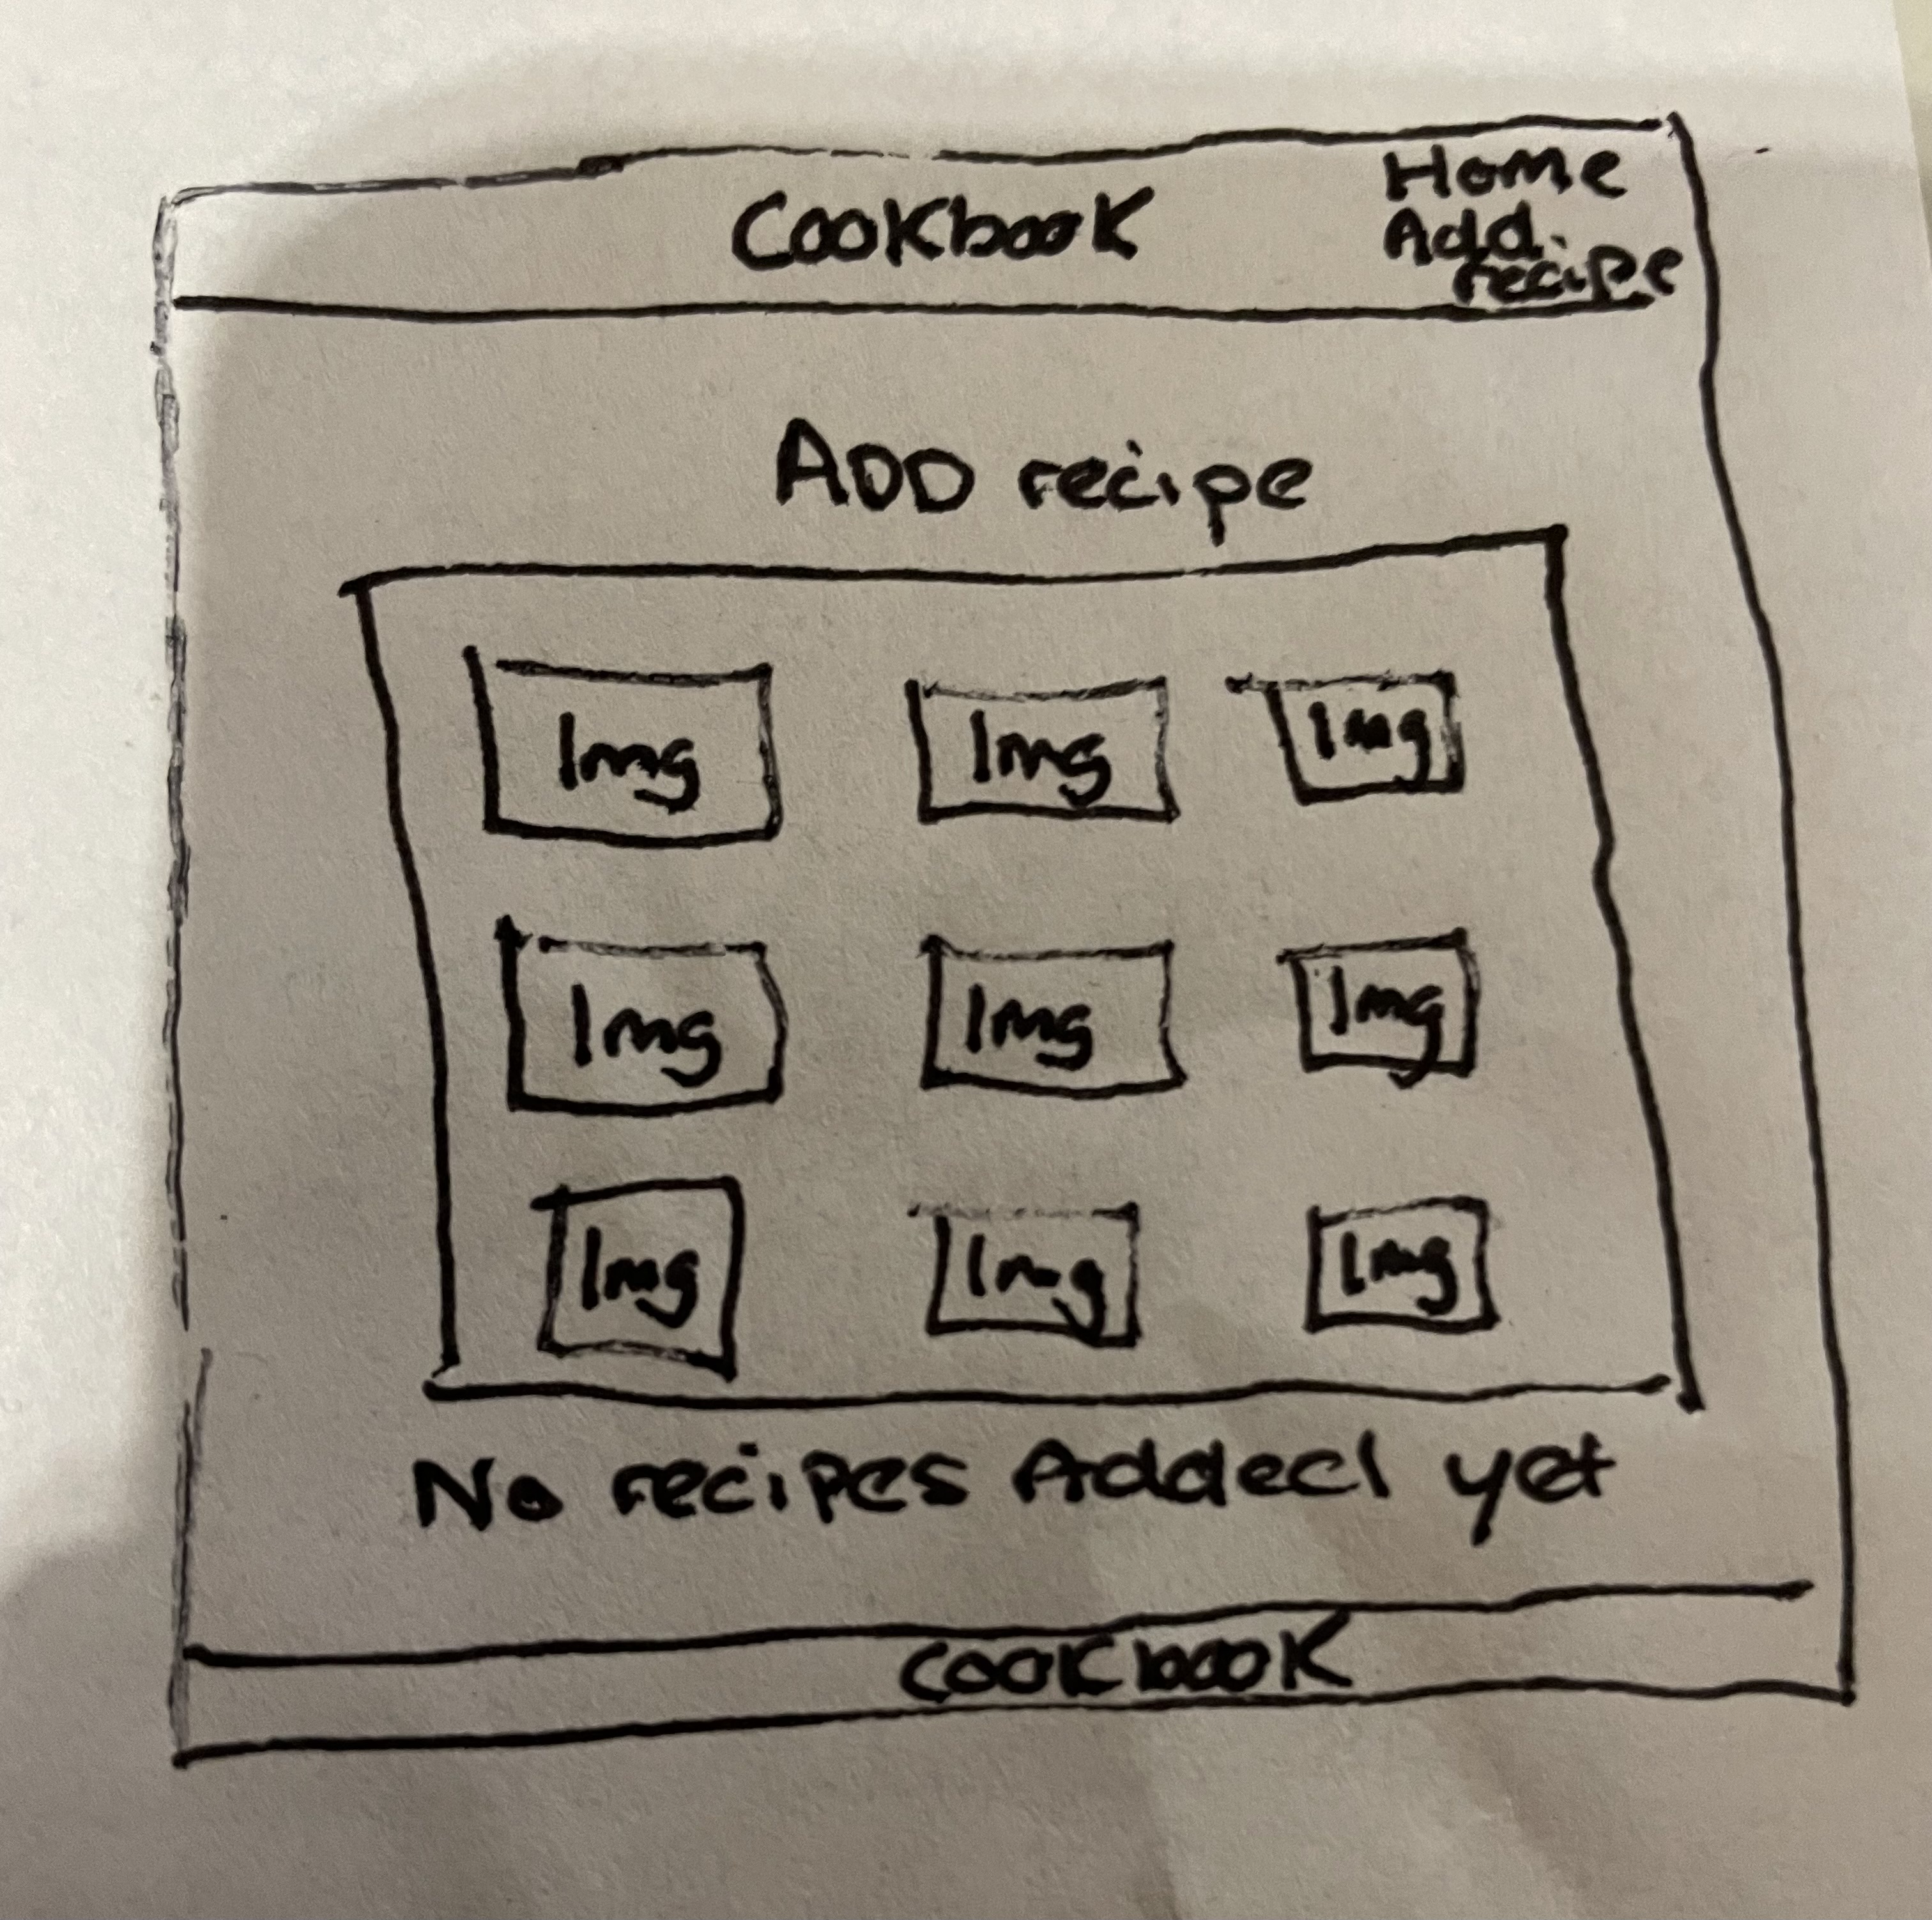 Cookbook
Home
Add
recipe
ADD recipe
Img Img Img
Img Img Img
Img Img Img
No recipes Added yet
cookbook